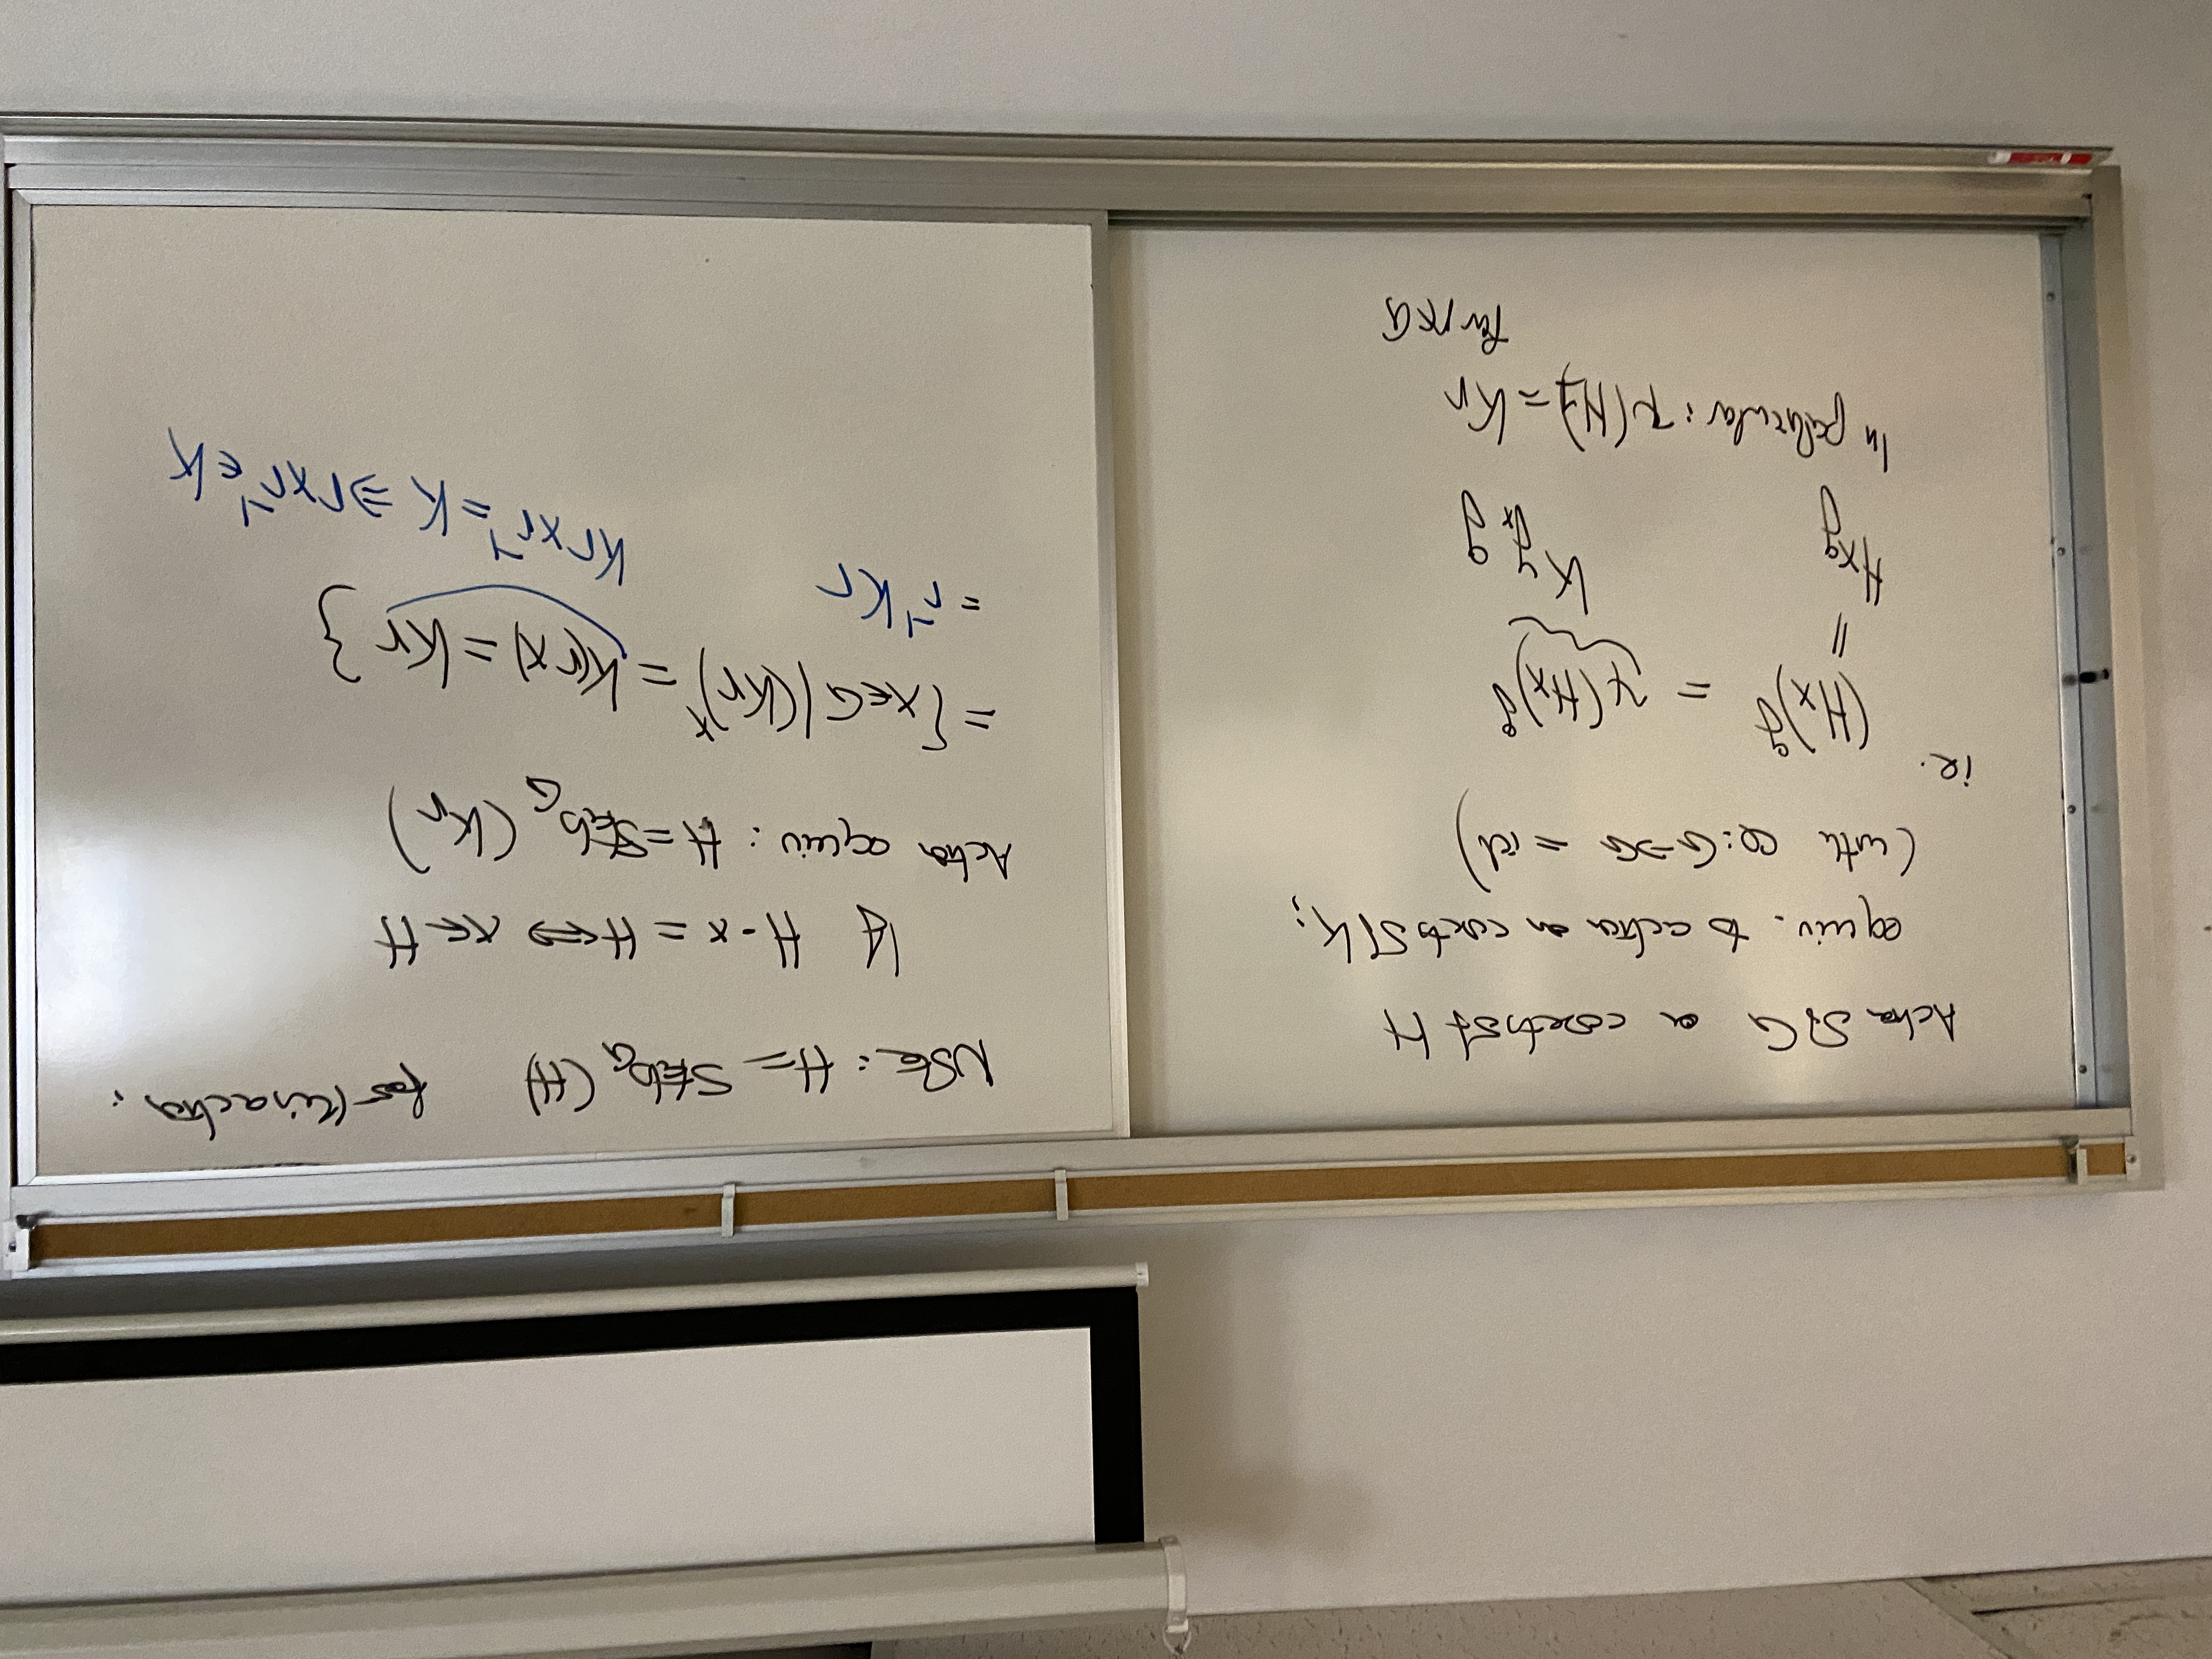 Action of G on cosets of H
equiv. to action on cosets of K;
(with φ: G→G = id)
ie.
(Hx)^g = ψ(Hx)^g
=
Hxg
K y_x g
In particular: ψ(H) = Kr
for r∈G
Note: H = Stab_G(H) for this action:
H·x = H ⇔ x∈H
Action equiv: H = Stab_G (Kr)
= {x∈G | (Kr)^x = K(rx) = Kr}
= r^-1 K r
K r x r^-1 = K ⇒ r x r^-1 ∈ K